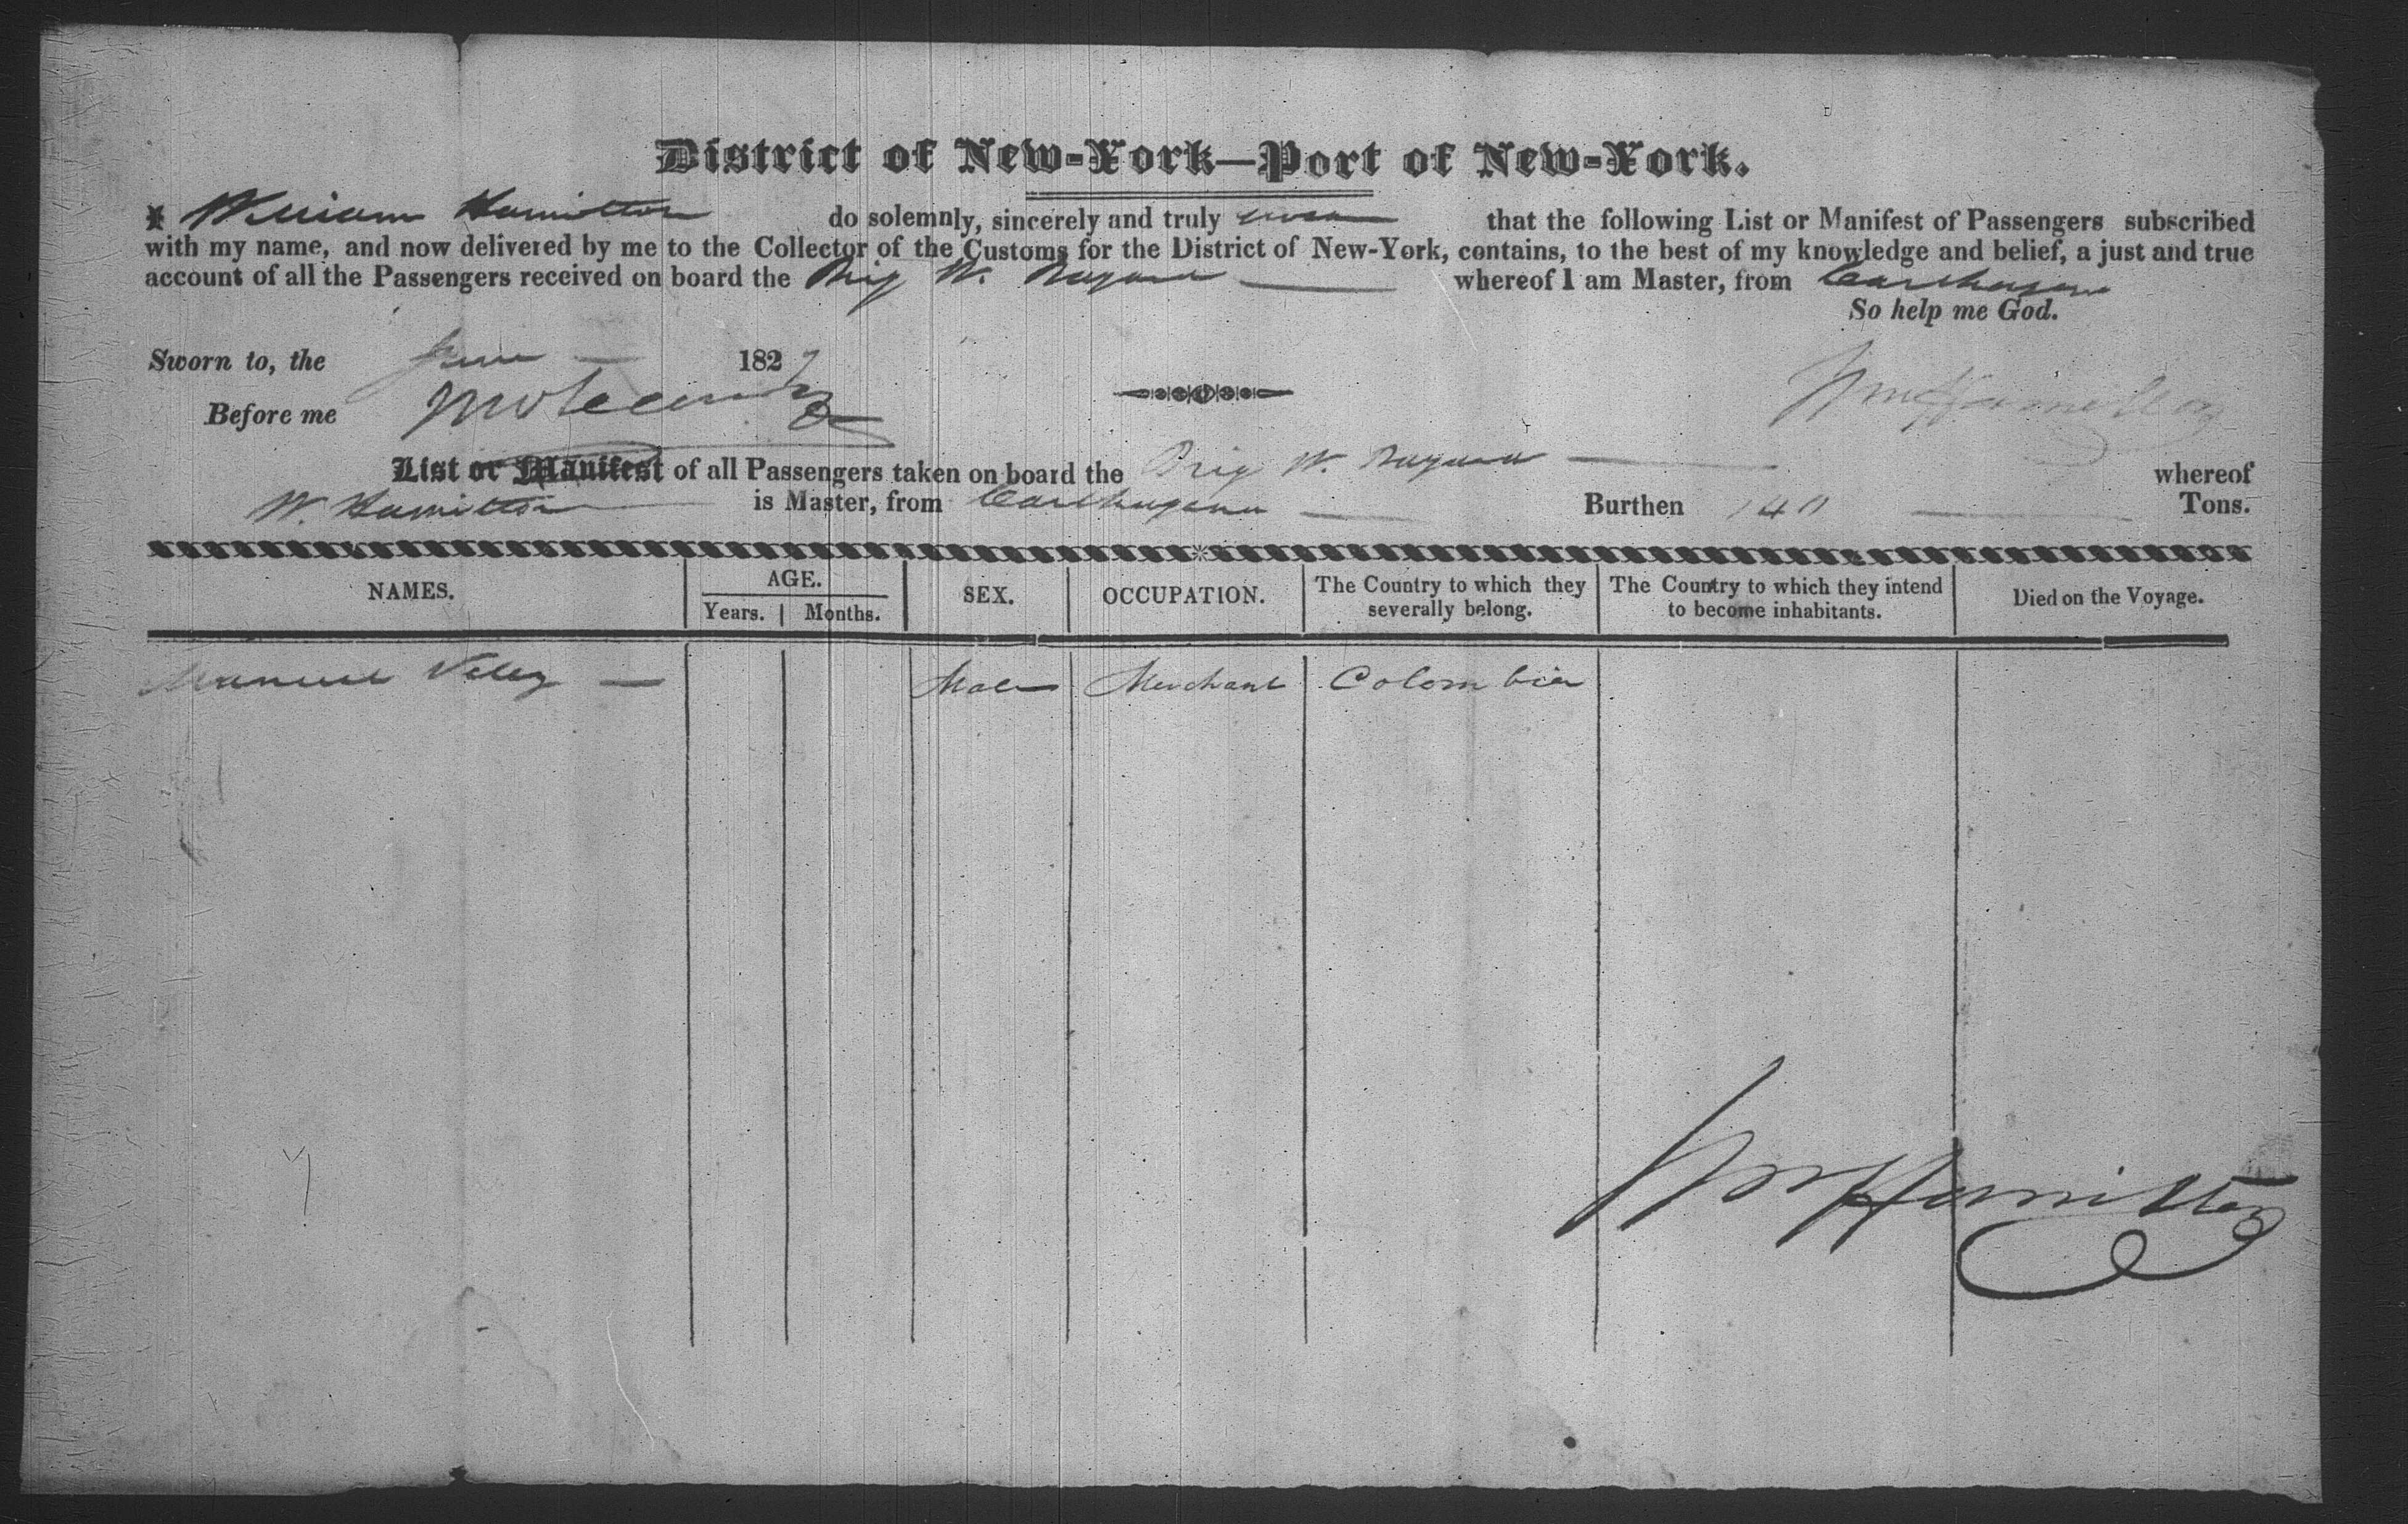 District of New-York—Port of New-York.
I William Hamilton do solemnly, sincerely and truly swear that the following List or Manifest of Passengers subscribed
with my name, and now delivered by me to the Collector of the Customs for the District of New-York, contains, to the best of my knowledge and belief, a just and true
account of all the Passengers received on board the Brig W. whereof I am Master, from Carthagena
So help me God.
Sworn to, the June 1827
Before me
Wm Hamilton
List or Manifest of all Passengers taken on board the Brig W. whereof
W. Hamilton is Master, from Carthagena Burthen 140 Tons.
NAMES. AGE. SEX. OCCUPATION. The Country to which they severally belong. The Country to which they intend to become inhabitants. Died on the Voyage.
Years. Months.
Manuel Velez Male Merchant Colombia
Wm Hamilton